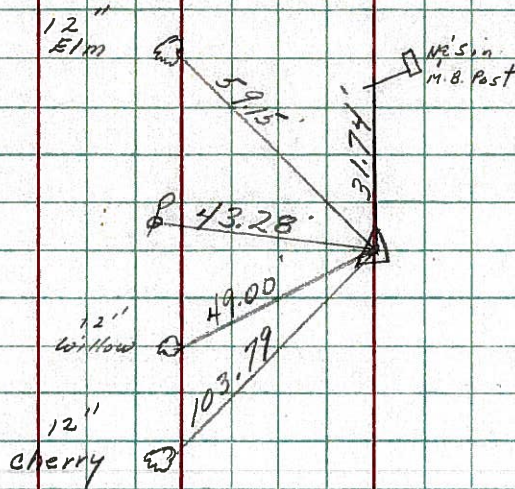 12"
Elm
59.15
N&S in
M.B. Post
31.74'
43.28'
49.00'
12"
Willow
103.79
12"
cherry